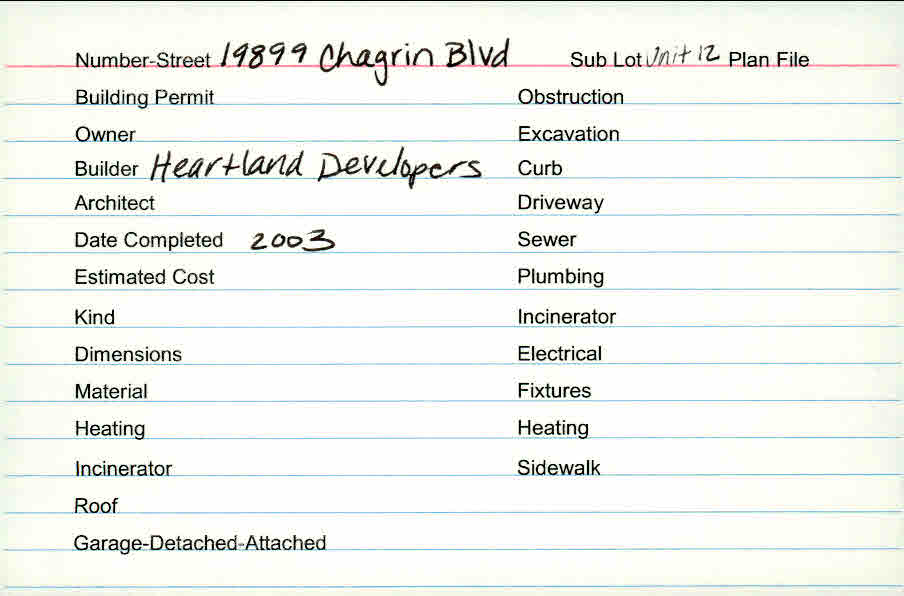 Number-Street 19899 Chagrin Blvd Sub Lot Unit 12 Plan File
Building Permit Obstruction
Owner Excavation
Builder Heartland Developers Curb
Architect Driveway
Date Completed 2003 Sewer
Estimated Cost Plumbing
Kind Incinerator
Dimensions Electrical
Material Fixtures
Heating Heating
Incinerator Sidewalk
Roof
Garage-Detached-Attached